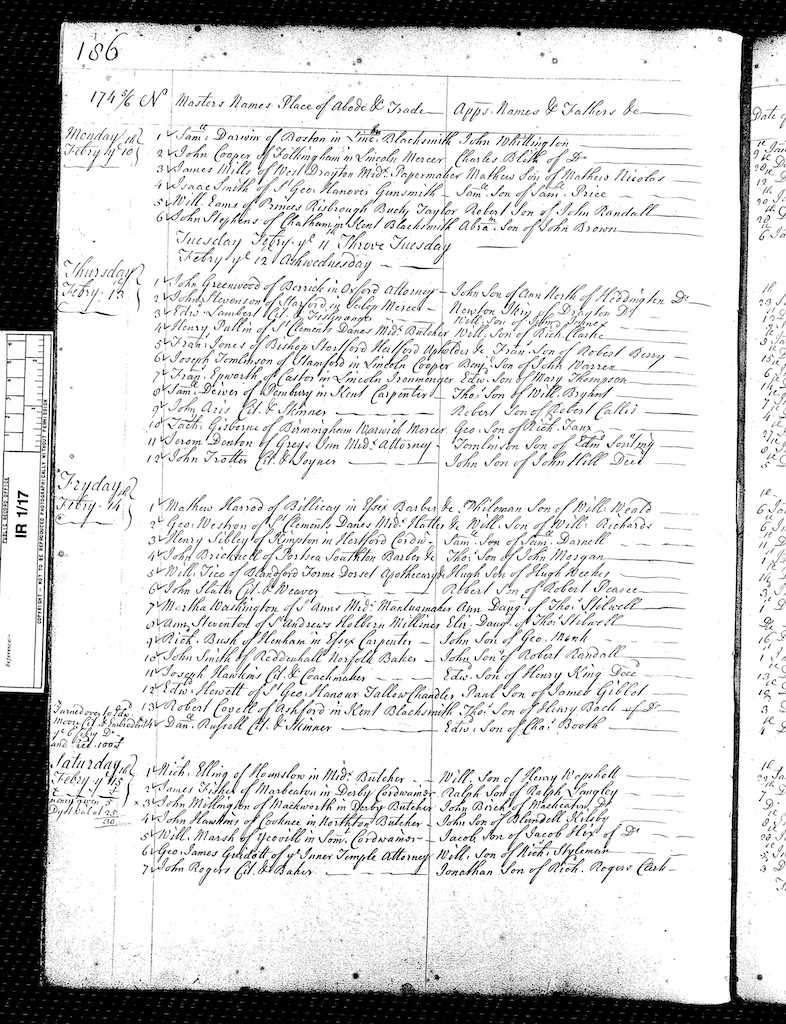 186
1745/6 No Masters Names Place of Abode & Trade Apps. Names & Fathers &c
Monday Febry ye 10th
1 Saml. Darwin of Boston in Linc. Blacksmith John Whittington
2 John Cooper of Folkingham in Lincoln Mercer Charles Blith of Do
3 James Mills of West Drayton Midx. Papermaker Mathew Son of Mathew Nicolas
4 Isaac Smith of St Geo. Hanover Gunsmith Saml. Son of Saml. Price
5 Will. Eams of Princes Risbrough Bucks Taylor Robert Son of John Randall
6 John Stephens of Chatham in Kent Blacksmith Abram. Son of John Brown
Tuesday Febry. ye 11th Shrove Tuesday
Febry ye 12 Ashwednesday
Thursday Febry. 13
1 John Greenwood of in Oxford Attorney John Son of Ann North of Heddington Do
2 John Stevenson of in Salop Mercer Newton of Drayton Do
3 Edwd. Lambert Cit. & Fishmonger Son of
4 Henry Pullin of St Clements Danes Midx. Butcher Will. Son of Rich. Clarke
5 Fran. Jones of Bishop Stortford Hertford Upholder &c Fran. Son of Robert Berry
6 Joseph Tomlinson of Stamford in Lincoln Cooper Benj. Son of John Warren
7 Fran. Epworth of Castor in Lincoln Ironmonger Edw. Son of Mary Thompson
8 Saml. of Pembury in Kent Carpenter Tho. Son of Will. Bryant
9 John Aris Cit. & Skinner Robert Son of Robert Callis
10 Zach. Gisborne of Birmingham Warwick Mercer Geo. Son of Rich. Faux
11 Jerom Denton of Greys Inn Midx. Attorney Tomlinson Son of Edm.
12 John Trotter Cit. & Joyner John Son of John Hill Decd
Fryday Febry. 14th
1 Mathew Harrod of Billicay in Essex Barber &c Whileman Son of Will. Weald
2 Geo. Weston of St Clements Danes Midx. Hatter &c Will. Son of Will. Richards
3 Henry Sibley of Kimpton in Hertford Cordw. Saml. Son of Saml. Darnell
4 John Bricknell of Portsea Southton Barber &c Tho. Son of John Morgan
5 Will. Tice of Blandford Forme Dorset Apothecary &c Hugh Son of Hugh Weekes
6 John Slater Cit. & Weaver Robert Son of Robert Pearce
7 Martha Washington of St Anns Midx. Mantuamaker Ann Daug. of Tho. Stilwell
8 Ann Steventon of St Andrews Holborn Milliner Eliz. Daug. of Tho. Stilwell
9 Rich. Bush of Henham in Essex Carpenter John Son of Geo. Monk
10 John Smith of Reddenhall Norfolk Baker John Son of Robert Randall
11 Joseph Hawkins Cit. & Coachmaker Edw. Son of Henry King Decd
12 Edwd. Hewett of St Geo. Hanour Tallow Chandler Paul Son of James Giblet
13 Robert Covell of Ashford in Kent Blacksmith Tho. Son of Henry Back of Do
Turned over to Edw. Moor Cit. & ye 6 Febry Do and red. 100£
14 Danl. Russell Cit. & Skinner Edwd. Son of Cha. Booth
Saturday Febry ye 15th
1 Rich. Elling of Hounslow in Midx. Butcher Will. Son of Henry Wopshott
2 James Fisher of Marbeaton in Derby Cordwainer Ralph Son of Ralph Langley
3 John Millington of Mackworth in Derby Butcher John Birch of Do
4 John Hawkins of Cooknoe in Northton Butcher John Son of Blundell Kilsby
5 Will. Marsh of Yeovill in Som. Cordwainer Jacob Son of Jacob Hex of Do
6 Geo. James Guidott of ye Inner Temple Attorney Will. Son of Rich. Styleman
7 John Rogers Cit. & Baker Jonathan Son of Rich. Rogers Clark
mony given 5
Dyet val. at 25
30
PUBLIC RECORD OFFICE
IR 1/17
Reference:-
COPYRIGHT - NOT TO BE REPRODUCED PHOTOGRAPHICALLY WITHOUT PERMISSION
Date of